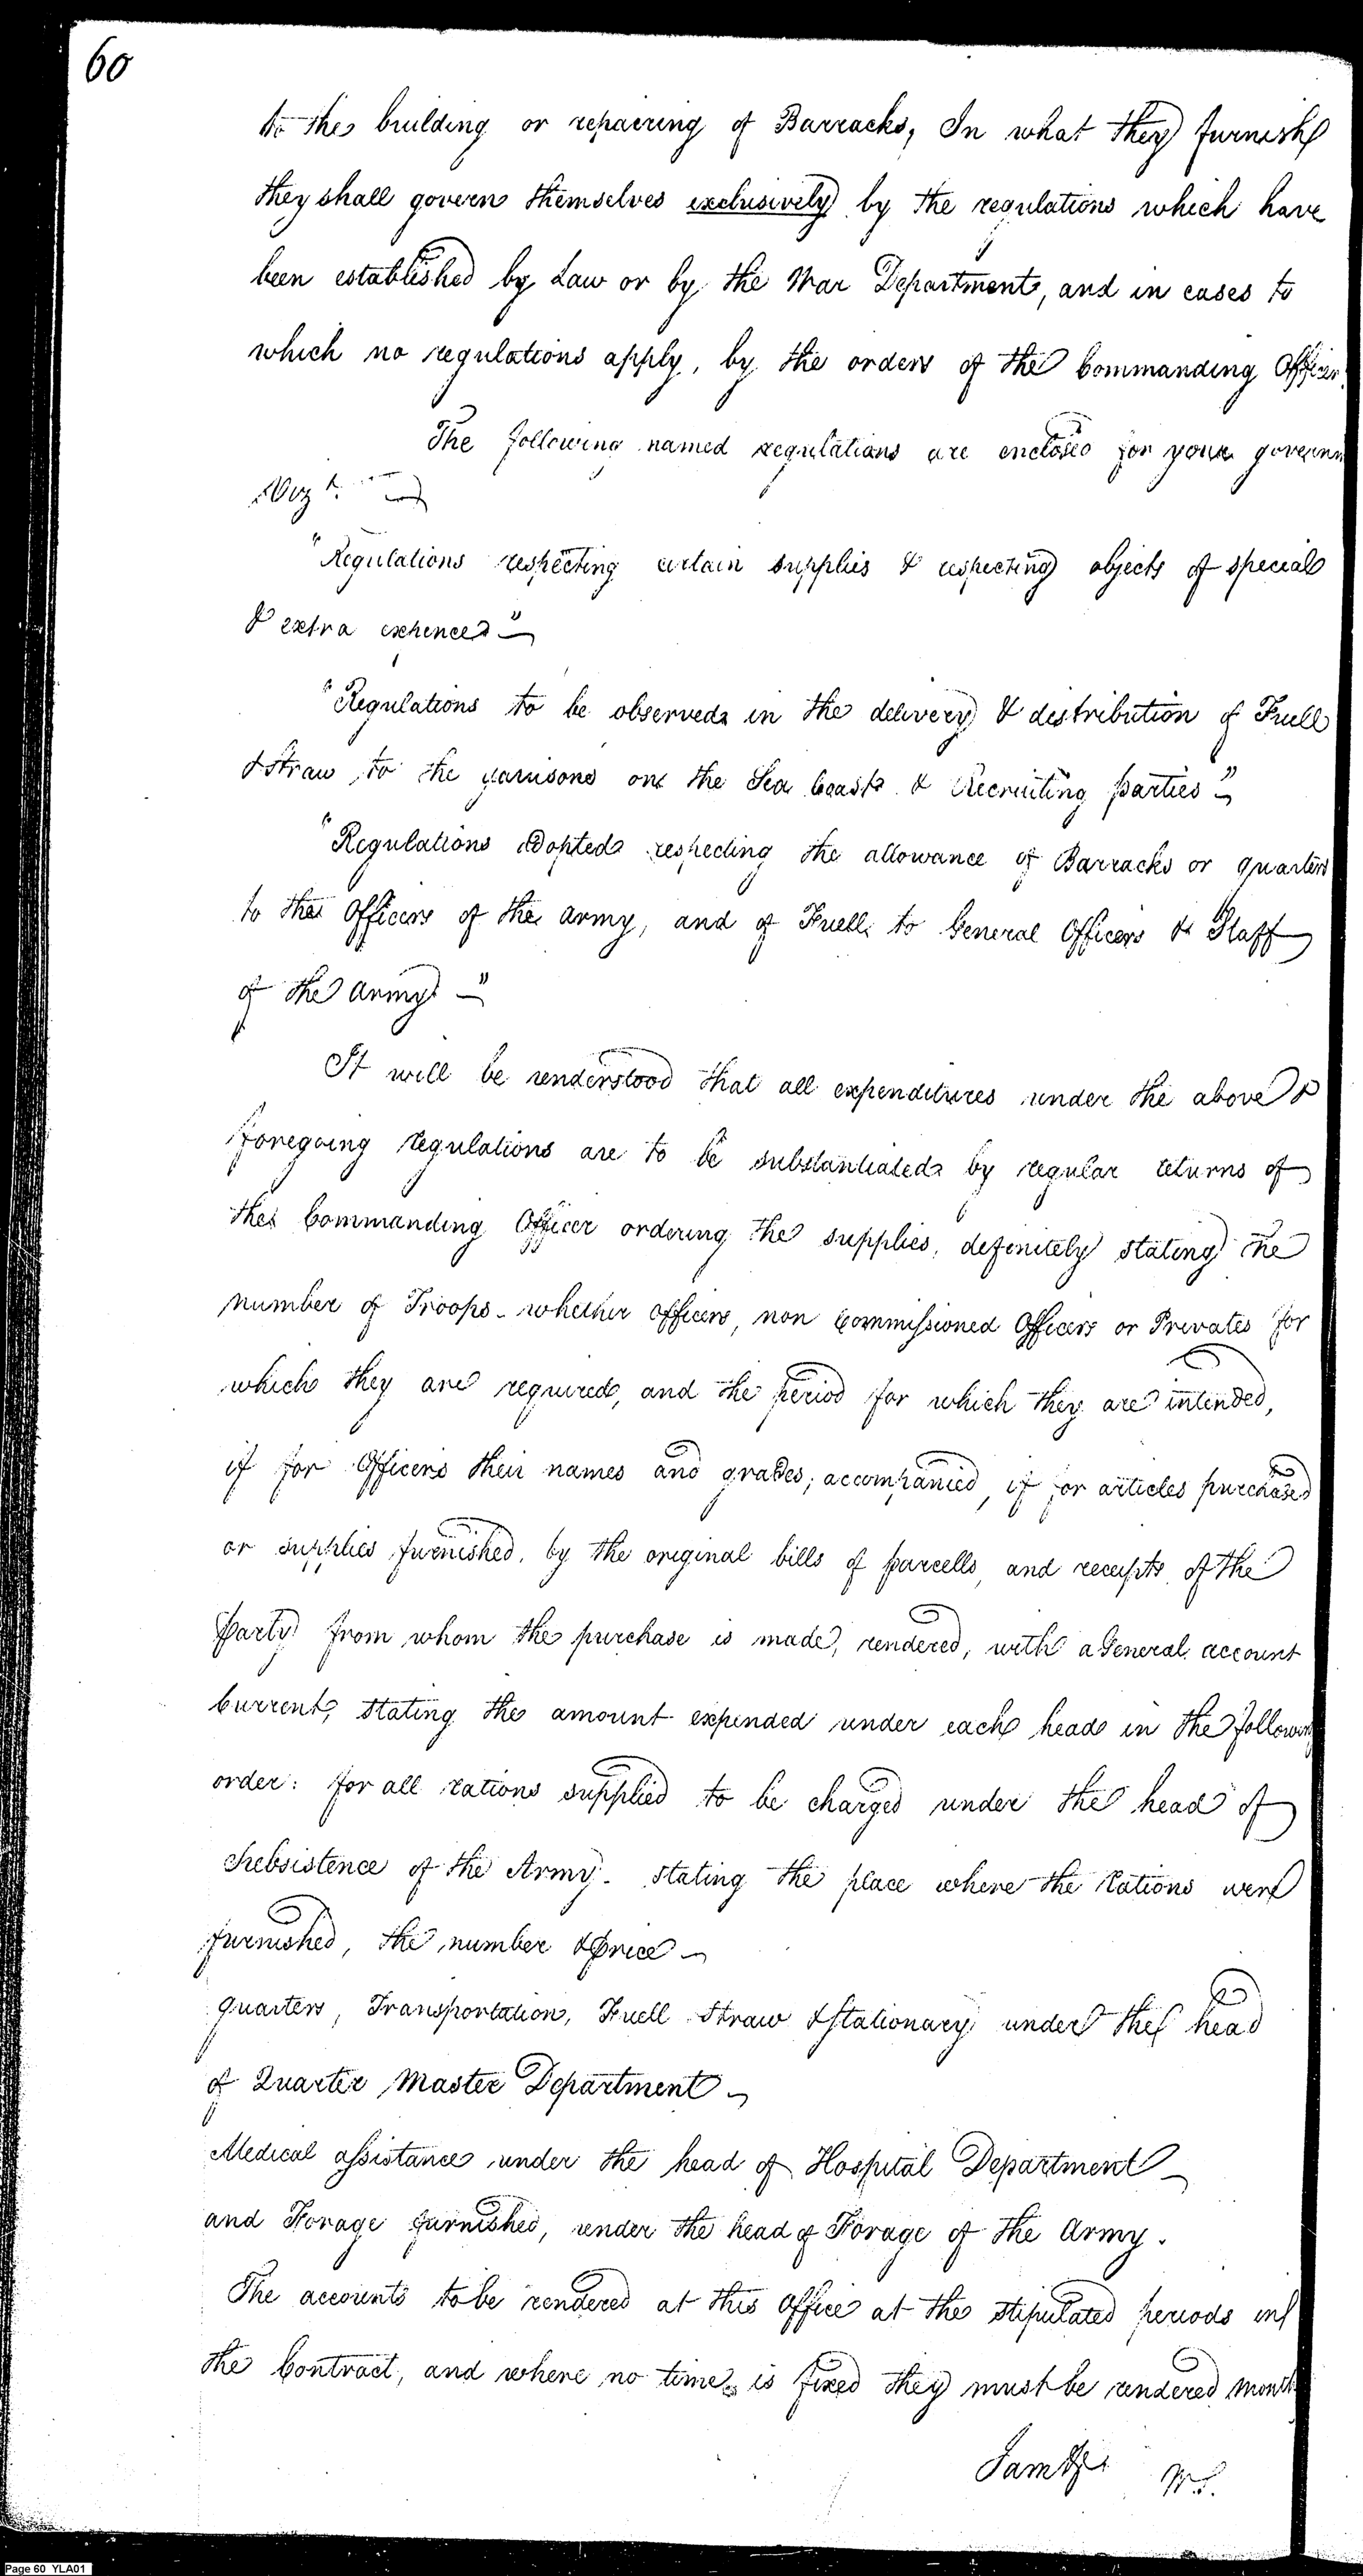 60
to the building or repairing of Barracks, In what they furnish
they shall govern themselves exclusively by the regulations which have
been established by Law or by the War Department, and in cases to
which no regulations apply, by the orders of the Commanding Officer.
The following named regulations are enclosed for your governm
Vizt.
"Regulations respecting certain supplies & respecting objects of special
& extra expences"
"Regulations to be observed in the delivery & distribution of Fuell
& straw to the garrisons on the Sea Coast & Recruiting parties"
"Regulations adopted respecting the allowance of Barracks or quarters
to the Officers of the army, and of Fuell to General Officers & Staff
of the army"
It will be understood that all expenditures under the above &
foregoing regulations are to be substantiated by regular returns of
the Commanding Officer ordering the supplies, definitely stating the
number of Troops - whether officers, non commissioned Officers or Privates for
which they are required, and the period for which they are intended,
if for Officers their names and grades; accompanied, if for articles purchased
or supplies furnished, by the original bills of parcells, and receipts of the
party from whom the purchase is made, rendered, with a General account
Current, stating the amount expended under each head in the following
order: for all rations supplied to be charged under the head of
Subsistence of the Army - stating the place where the Rations were
furnished, the number & price -
quarters, Transportation, Fuell Straw & Stationary under the head
of Quarter Master Department -
Medical assistance under the head of Hospital Department -
and Forage furnished, under the head of Forage of the Army.
The accounts to be rendered at this Office at the stipulated periods in
the Contract, and where no time is fixed they must be rendered month
W. S.
Page 60 YLA01